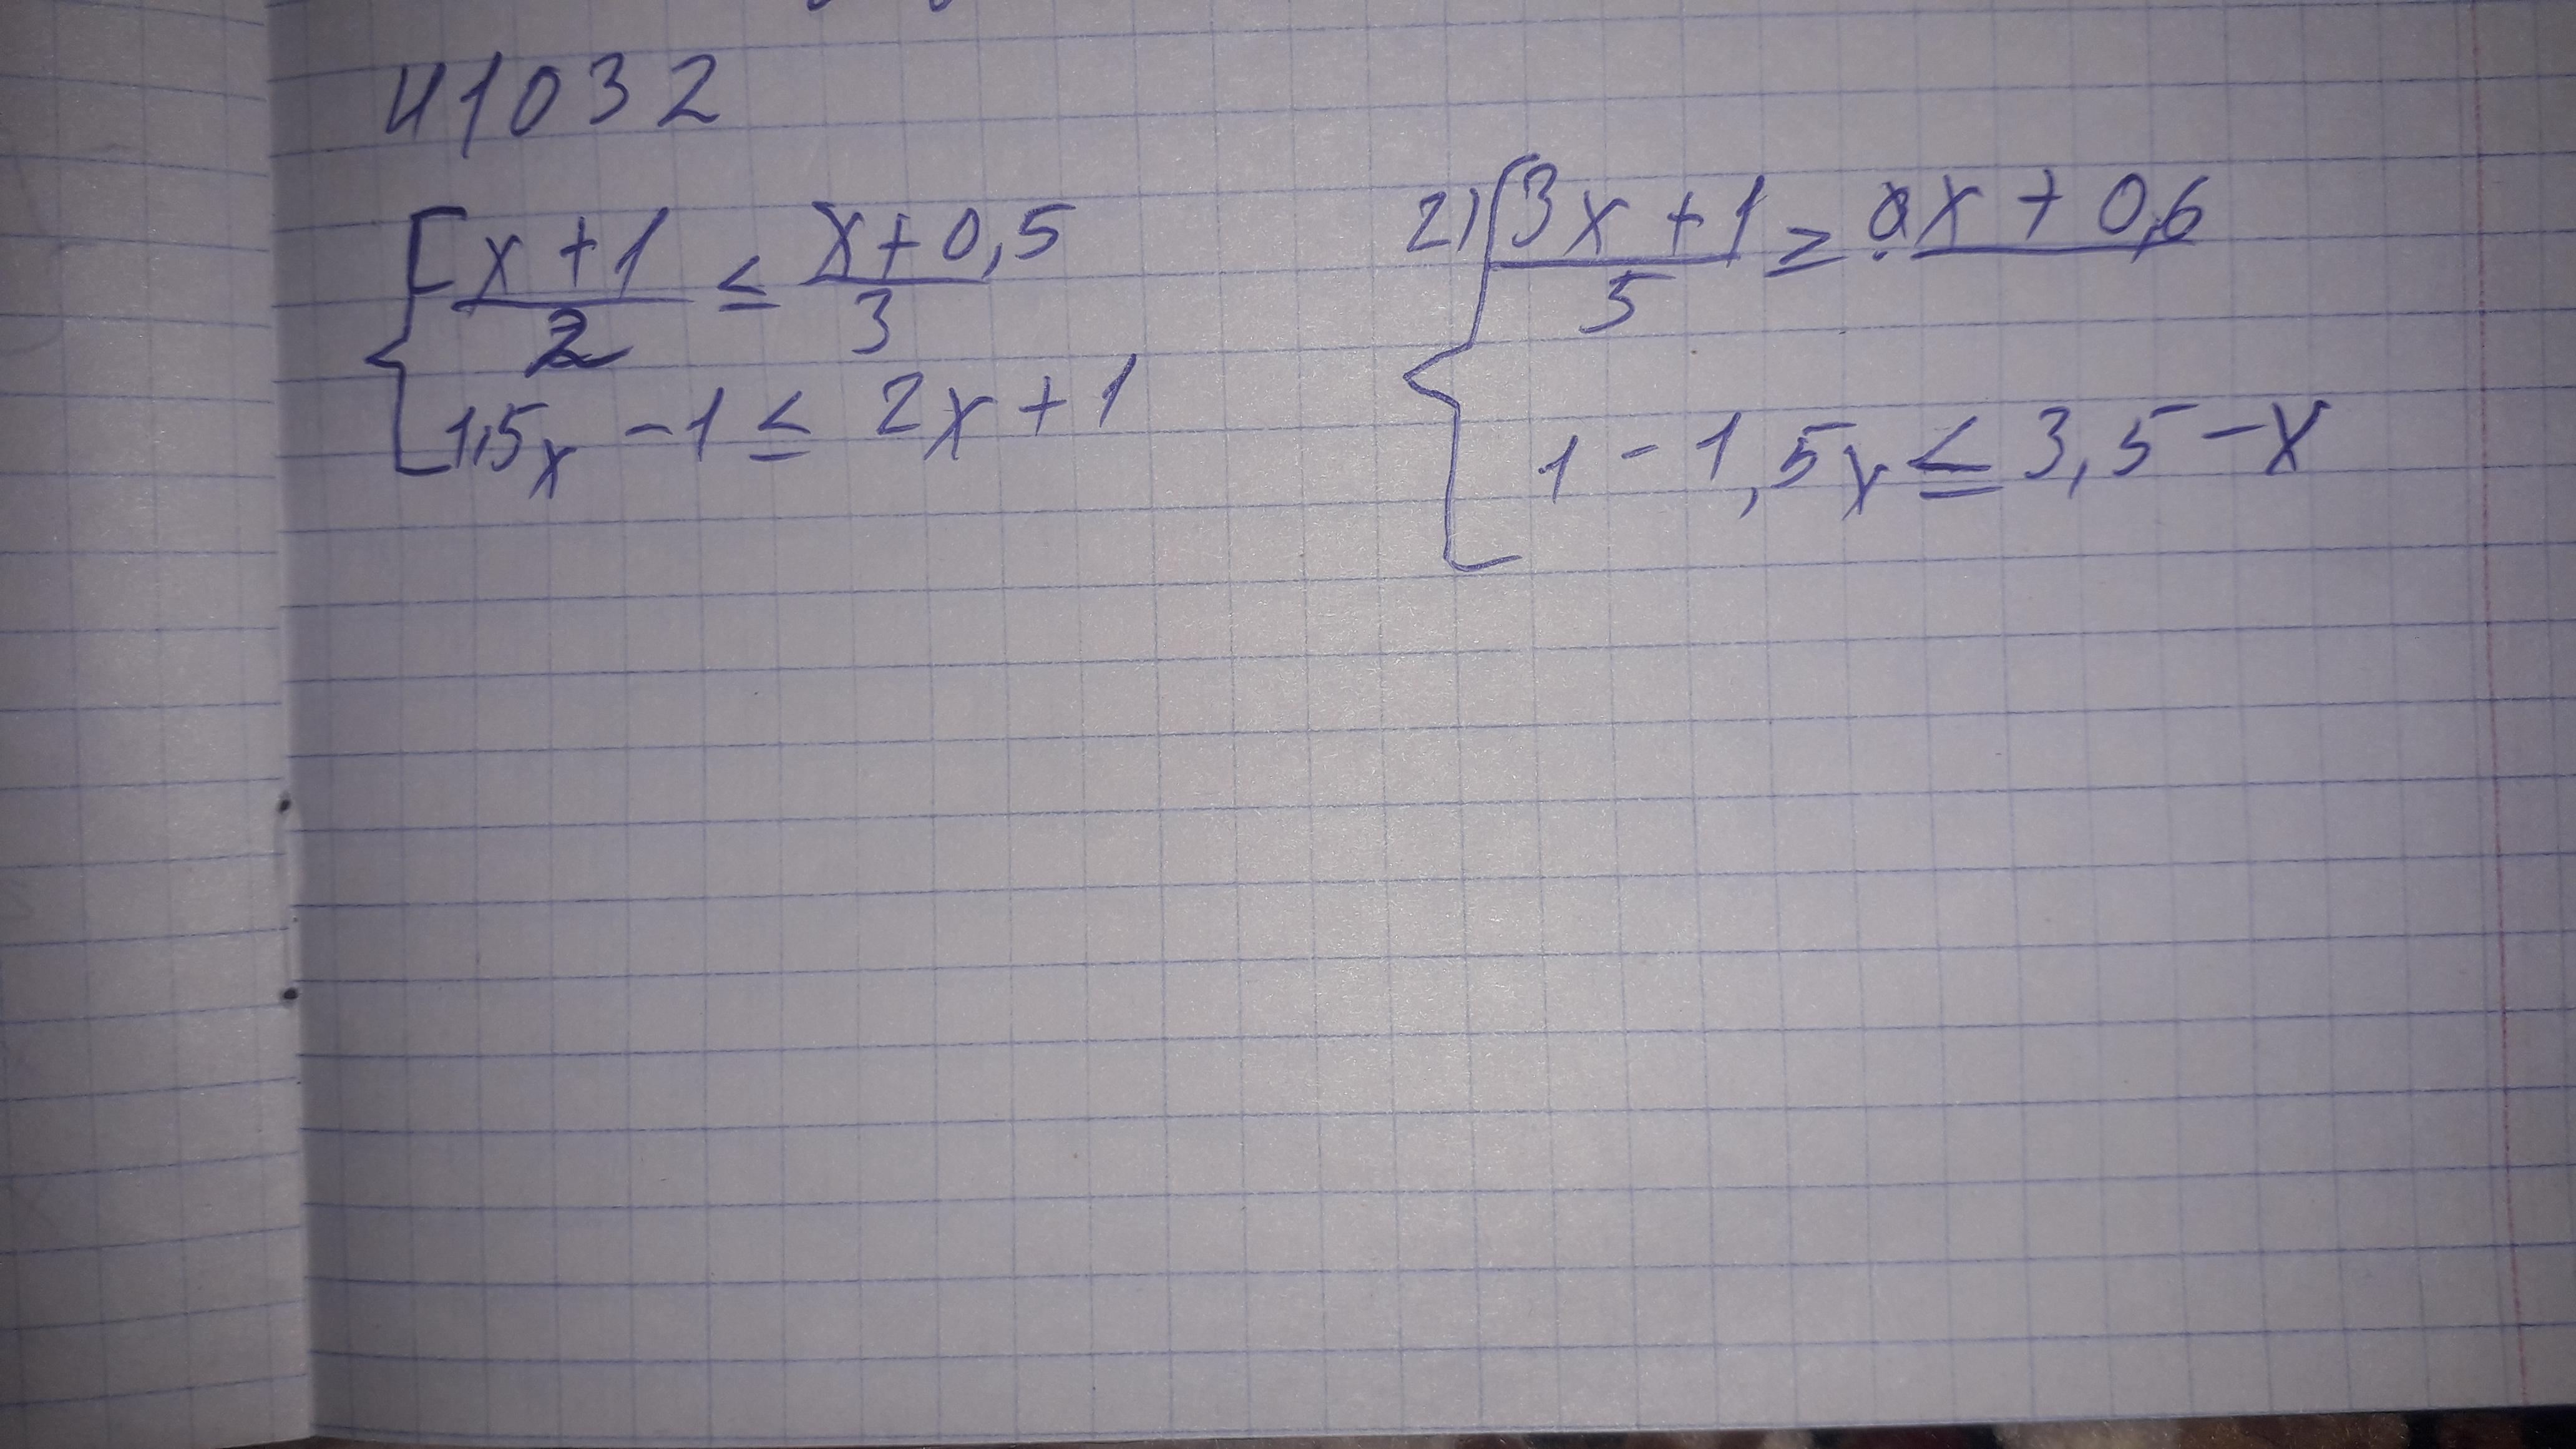 И1032
{ x+1/2 ≤ x+0,5/3
1,5x - 1 ≤ 2x + 1
2) { 3x+1/5 ≥ x + 0,6
1 - 1,5x ≤ 3,5 - x